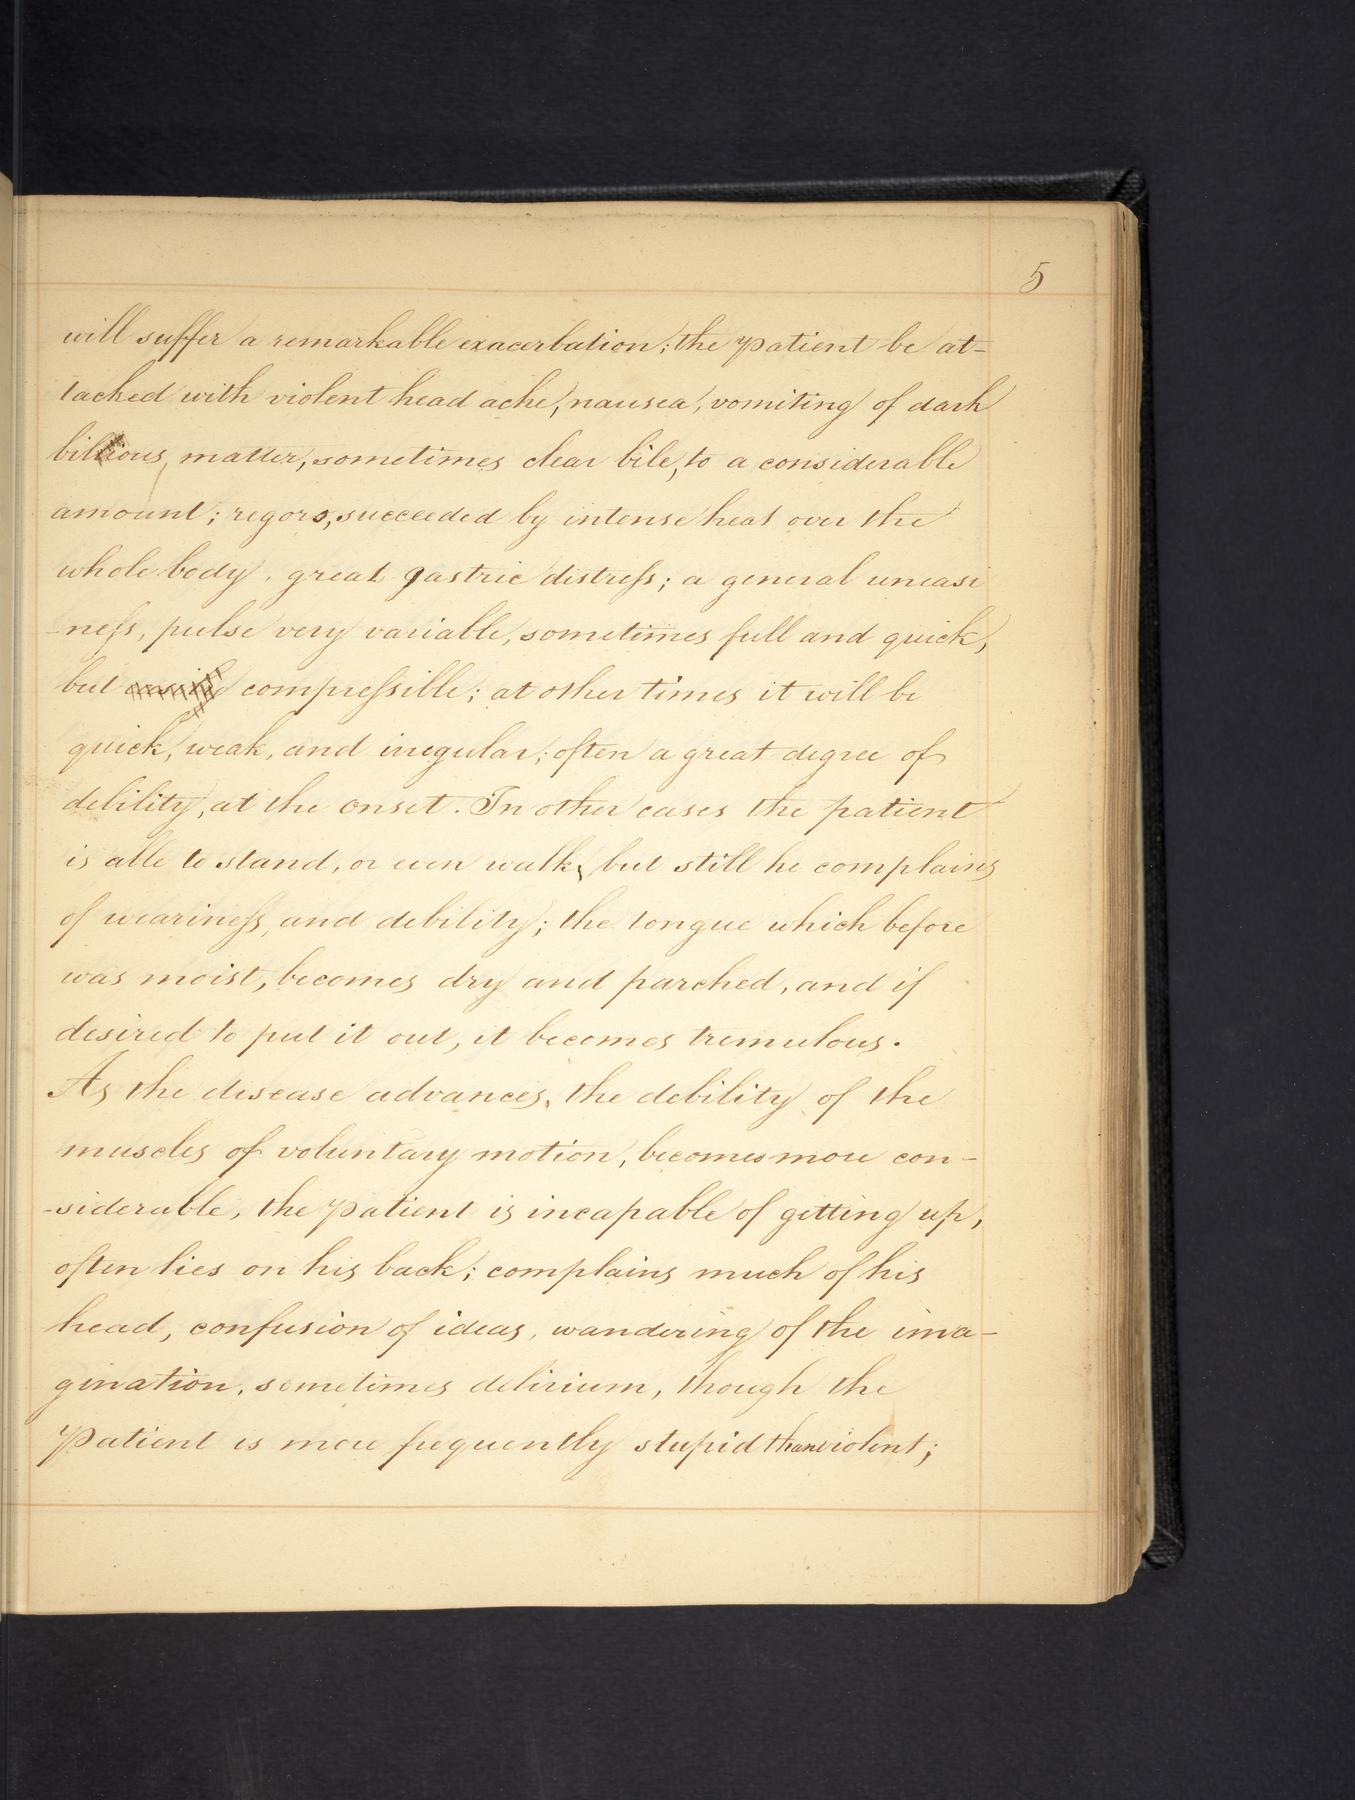 5
will suffer a remarkable exacerbation; the patient be at-
tacked with violent head ache, nausea, vomiting of dark
bilious, matter, sometimes clear bile, to a considerable
amount; regors, succeeded by intense heat over the
whole body. great gastric distress; a general uneasi
-ness, pulse very variable, sometimes full and quick,
but compressible; at other times it will be
quick, weak, and iregular; often a great degree of
debility, at the onset. In other cases the patient
is able to stand, or even walk, but still he complains
of weariness, and debility; the tongue which before
was moist, becomes dry and parched, and if
desired to put it out, it becomes tremulous.
As the disease advances, the debility of the
muscles of voluntary motion, becomes more con-
-siderable, the patient is incapable of getting up,
often lies on his back; complains much of his
head, confusion of ideas, wandering of the ima-
gination, sometimes delirium, though the
patient is more frequently stupid than violent;